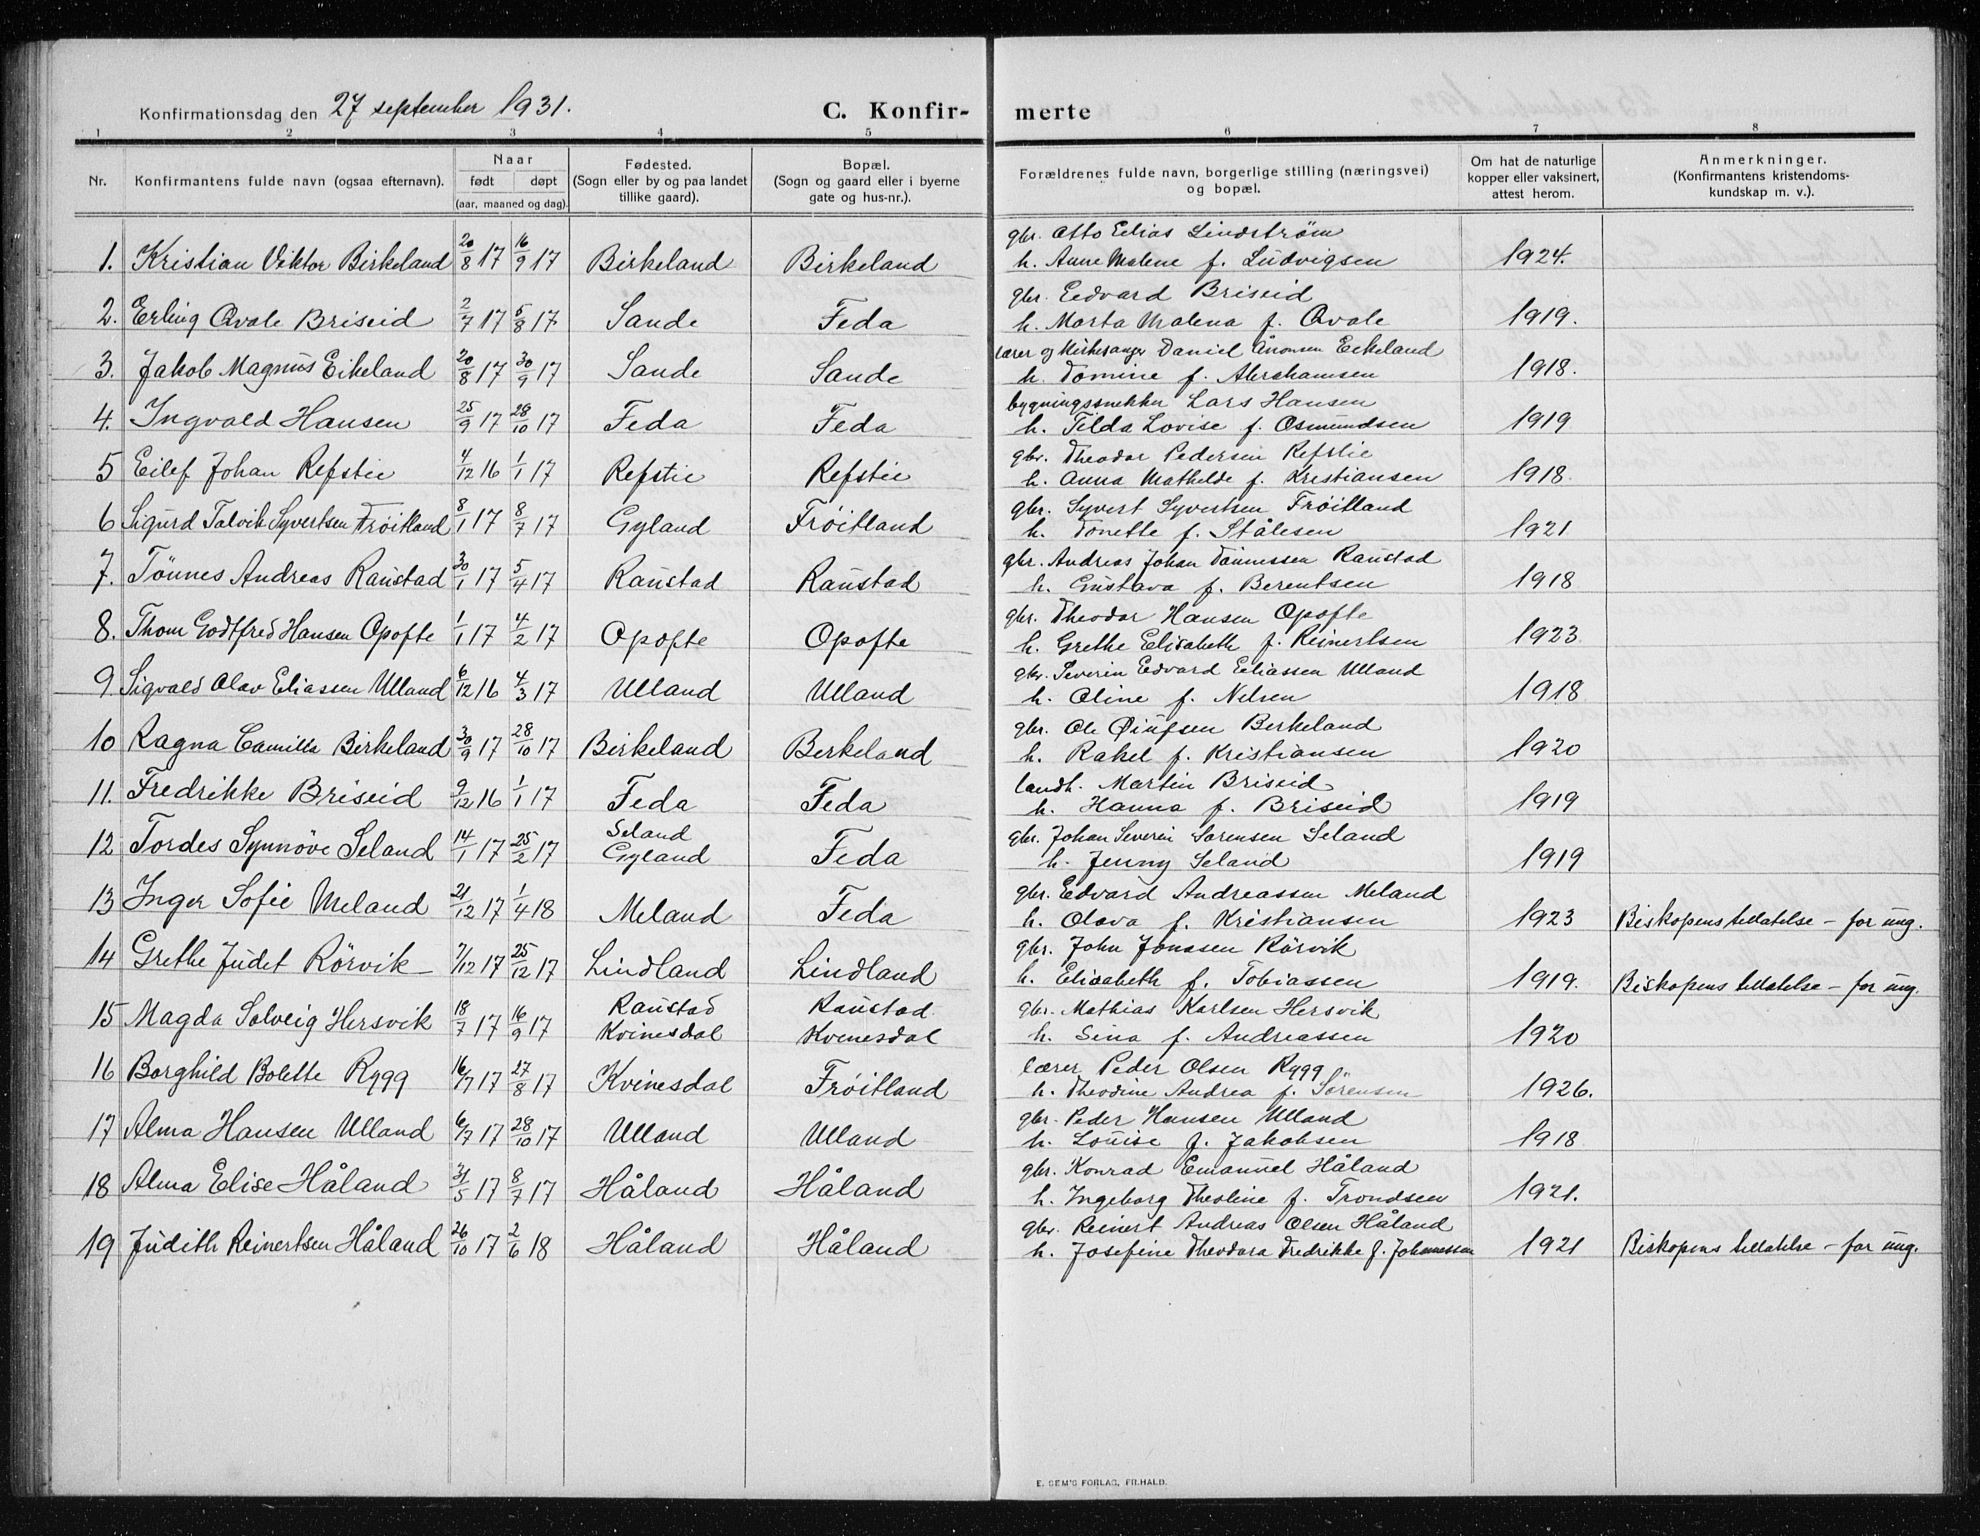 Konfirmationsdag den 27 september 1931.
C. Konfir-
merte
1 2 3 4 5 6 7 8
Nr.
Konfirmantens fulde navn (ogsaa efternavn).
Naar
født døpt
(aar, maaned og dag).
Fødested.
(Sogn eller by og paa landet
tillike gaard).
Bopæl.
(Sogn og gaard eller i byerne
gate og hus-nr.).
Forældrenes fulde navn, borgerlige stilling (næringsvei)
og bopæl.
Om hat de naturlige
kopper eller vaksinert,
attest herom.
Anmerkninger.
(Konfirmantens kristendoms-
kundskap m. v.).
gbr. Otto Elias Lindstrøm
1. Kristian Viktor Birkeland 20/8 17 16/9 17 Birkeland Birkeland h. Anne Malene f. Ludvigsen 1924.
gbr. Eedvard Briseid
2. Erling Qvale Briseid 2/7 17 5/8 17 Sande Feda h. Marta Malena f. Qvale 1919.
lærer og kirkesanger Daniel Ånonsen Eikeland
3. Jakob Magnus Eikeland 20/8 17 30/9 17 Sande Sande h. Tomine f. Abrahamsen 1918.
bygningssnekker Lars Hansen
4. Ingvald Hansen 25/9 17 28/10 17 Feda Feda h. Tilda Lovise f. Osmundsen 1919
gbr. Theodor Pedersen Refstie
5 Eilef Johan Refstie 4/12 16 1/1 17 Refstie Refstie h. Anna Mathilde f. Kristiansen 1918.
gbr. Syvert Syvertsen Frøitland
6 Sigurd Talvik Syvertsen Frøitland 8/1 17 8/7 17 Gyland Frøitland h. Tonette f. Stålesen 1921
gbr. Andreas Johan Tønnessen Raustad
7. Tønnes Andreas Raustad 30/1 17 5/4 17 Raustad Raustad h. Gustava f. Berentsen 1918
gbr. Theodor Hansen Opofte
8. Thom Godtfred Hansen Opofte 1/1 17 4/2 17 Opofte Opofte h. Grethe Elisabeth f. Reinertsen 1923
gbr. Severin Edvard Eeliassen Ulland
9 Sigvald Olav Eliassen Ulland 6/12 16 4/3 17 Ulland Ulland h. Oline f. Nelsen 1918
gbr. Ole Øiufsen Berkeland
10 Ragna Camilla Birkeland 30/9 17 28/10 17 Birkeland Berkeland h. Rakel f. Kristiansen 1920
landh. Martin Briseid
11. Fredrikke Briseid 9/12 16 1/1 17 Feda Feda h. Hanna f. Briseid 1919
Seland gbr. Johan Severin Sørensen Seland
12 Tordes Synnøve Seland 14/1 17 25/2 17 Gyland Feda h. Jenny Seland 1919
gbr. Eedvard Andreassen Meland
13 Inger Sofie Meland 21/12 17 1/4 18 Meland Feda h. Olava f. Kristiansen 1923 Biskopens tillatelse – for ung.
gbr. John Jonassen Rörvik
14 Grethe Judet Rörvik 7/12 17 25/12 17 Lindland Lindland h. Elisabeth f. Tobiassen 1919. Biskopens tillatelse – for ung.
Raustad Raustad. gbr. Mathias Karlsen Hersvik
15 Magda Solveig Hersvik 18/7 17 16/9 17 Kvinesdal Kvinesdal h. Sina f. Andreassen 1920
lærer Peder Olsen Rygg
16 Borghild Bolette Rygg 16/7 17 27/8 17 Kvinesdal Frøitland h. Theodine Andrea f. Sörensen 1926.
gbr. Peder Hansen Ulland
17 Alma Hansen Ulland 6/7 17 28/10 17 Ulland Ulland h. Louise f. Jakobsen 1918
gbr. Konrad Emanuel Håland
18 Alma Elise Håland 31/5 17 8/7 17 Håland Håland h. Ingeborg Theoline f. Trondsen 1921.
gbr. Reinert Andreas Olsen Håland
19 Judith Reinertsen Håland 26/10 17 2/6 18 Håland Håland h. Josefine Theodora Fredrikke f. Johannessen 1921 Biskopens tillatelse – for ung.
E. SEM'S FORLAG, FR.HALD.